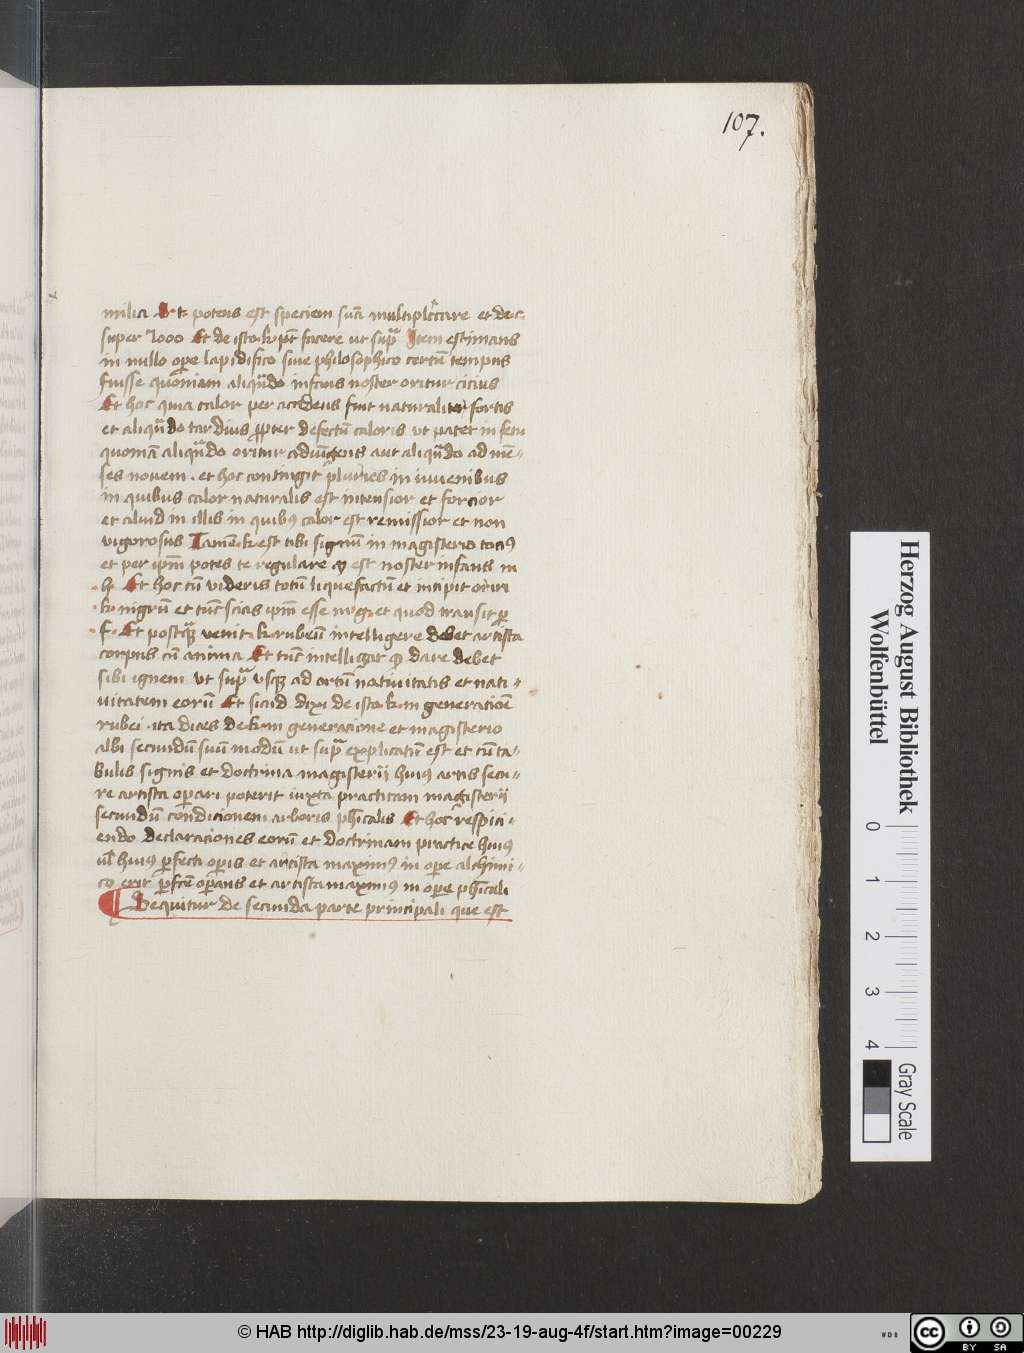 107.
milia Et potens est speciem suā multiplicare et de c.
super 1000 Et de isto .k. pōt facere ut supᵃ Item estimans
in nullo opere lapidifico siue philosophico certū tempus
fuisse quoniam aliqᵃdo infans noster oritur citius
Et hoc quia calor per accidens fuit naturaliter fortis
et aliqᵃdo tardius ꝓpter defectū caloris ut patet in fetu
quoniā aliqᵃdo oritur aut aliqᵃdo ad mē-
ses nouem . et hoc contingit pluries in iuuenibus
in quibus calor naturalis est intensior et forcior
et aliud in illis in quibꝰ calor est remissior et non
vigorosus Tamē .k. est tibi signū in magisterio tociꝰ
et per ipm̄ potes te regulare ꝙ est noster infans in
.h. Et hoc cū videris totū liquefactū et incipit oriri
.k. nigrū et tūc scias ipm̄ esse in .g. et quod transit ꝑ
.f. Et postqᵃꝫ venit .k. rubeū intelligere debet artista
corpus cū anima Et tūc intelligat ꝙ dare debet
sibi ignem ut supᵃ usqꝫ ad ortū natiuitatis et nati-
uitatem eorū Et sicud dixi de isto .k. in generatiōe
rubei . ita dices de .k. in generacione et magisterio
albi secundū suū modū ut supᵃ explicatū est et cū ta-
bulis signis et doctrina magisterij huiꝰ artis secu-
re artista oꝑari poterit iuxta practicam magisterij
secundū condicionem arboris phīcalis Et hoc respici-
endo declaraciones eorū et doctrinam practice huiꝰ
ul̄ huiꝰ ꝑfecti oꝑis et artista maximꝰ in oꝑe alchimi-
co erit ꝑfcē oꝑans et artista maximꝰ in oꝑe phīcali
¶ Sequitur de secunda parte principali que est
Herzog August Bibliothek
Wolfenbüttel
0 1 2 3 4
Gray Scale
© HAB http://diglib.hab.de/mss/23-19-aug-4f/start.htm?image=00229
WDB
cc BY SA